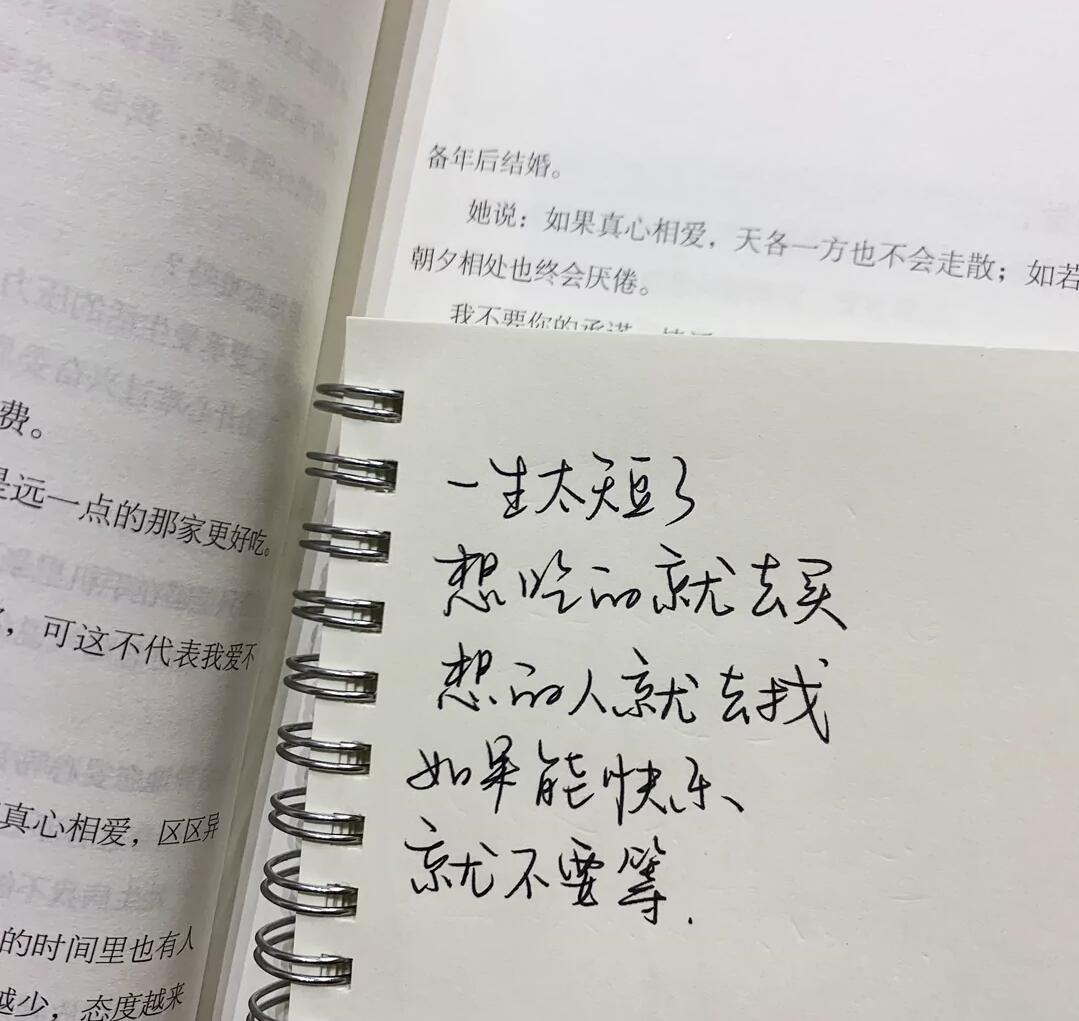 备年后结婚。
她说：如果真心相爱，天各一方也不会走散；如若
朝夕相处也终会厌倦。
我不要你的承诺
费。
是远一点的那家更好吃。
，可这不代表我爱不
真心相爱，区区异
的时间里也有人
减少，态度越来
一生太短了
想吃的就去买
想的人就去找
如果能快乐、
就不要等.